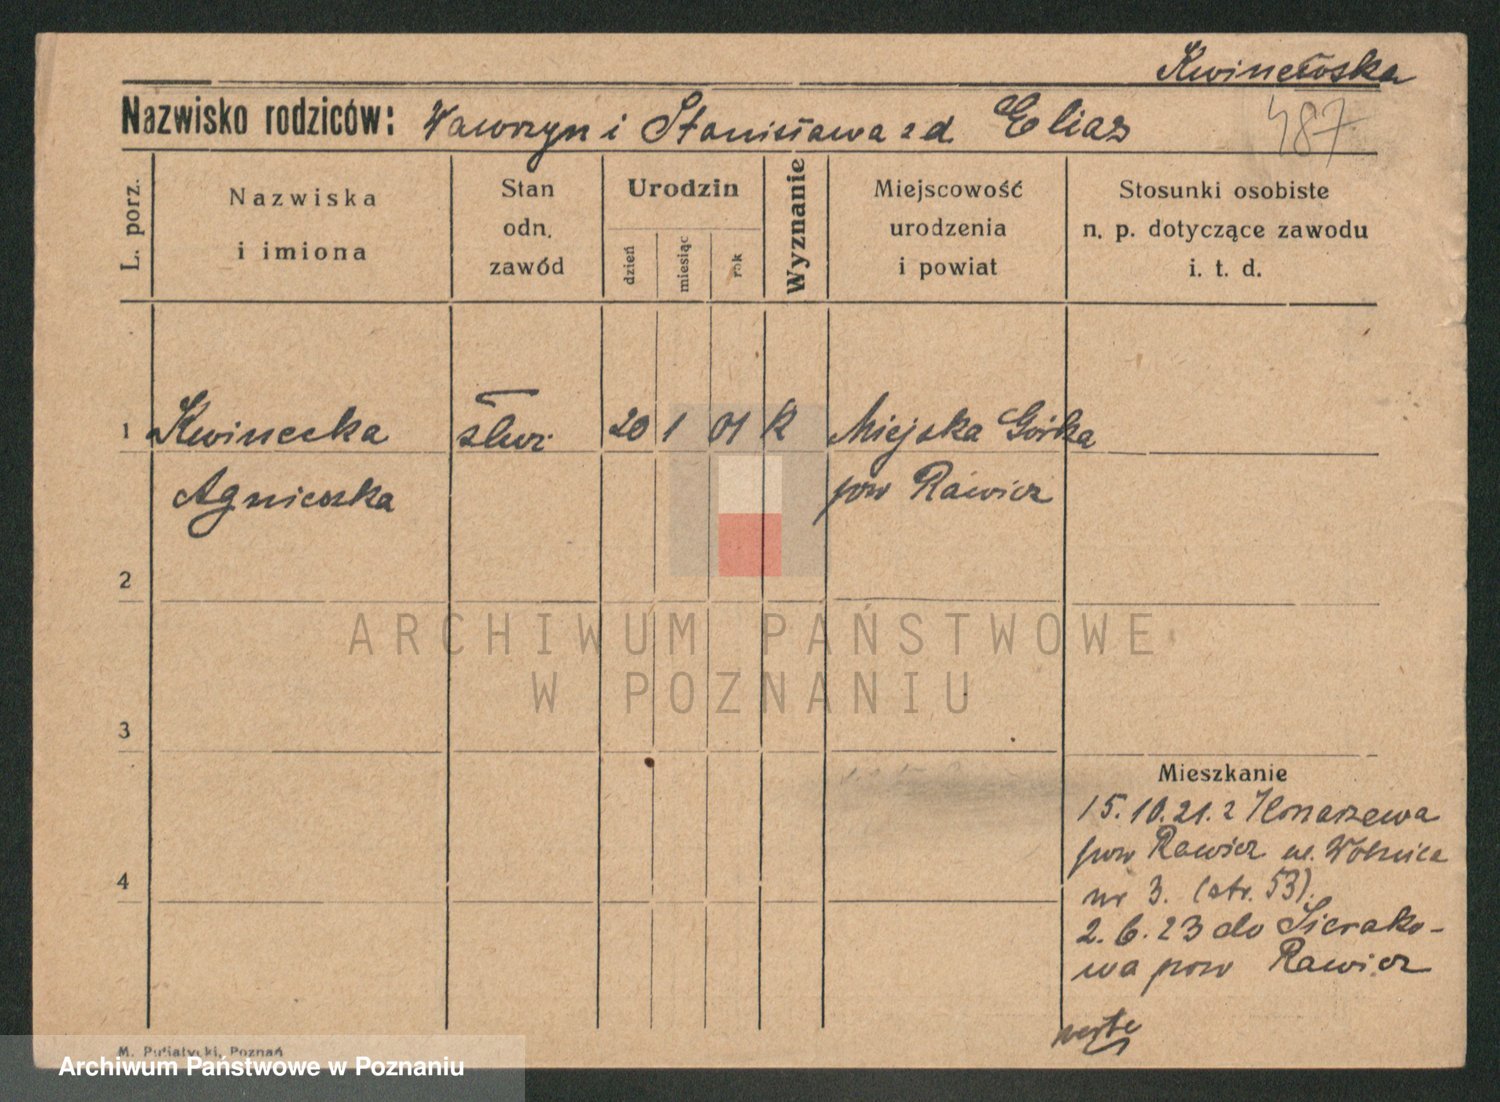 Kwinecka
487
Nazwisko rodziców: Wawrzyn i Stanisława z d. Eliaz
L. porz.
Nazwiska
i imiona
Stan
odn.
zawód
Urodzin
dzień
miesiąc
rok
Wyznanie
Miejscowość
urodzenia
i powiat
Stosunki osobiste
n. p. dotyczące zawodu
i. t. d.
1 Kwinecka służ. 20 1 01 R Miejska Górka
Agnieszka pow Rawicz
2
3
4
ARCHIWUM PAŃSTWOWE
W POZNANIU
Mieszkanie
15.10.21. z Konarzewa
pow Rawicz ul. Wolnica
nr 3. (str. 53).
2.6.23 do Sierako-
wa pow Rawicz
verte
M. Putiatycki, Poznań
Archiwum Państwowe w Poznaniu